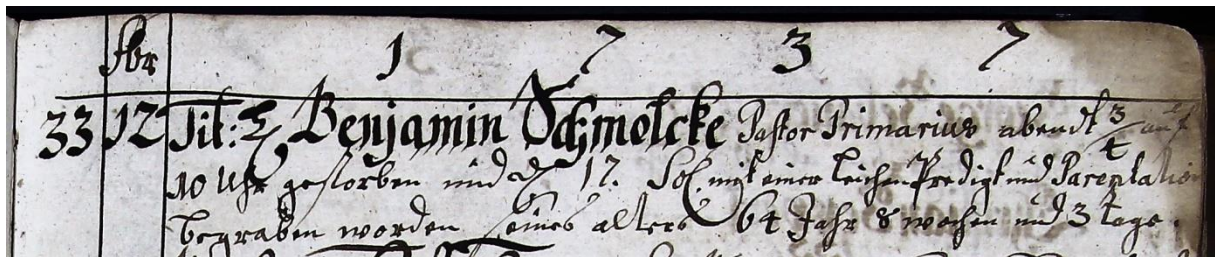 Fbr 1 7 3 7
33 12 Tit: H. Benjamin Schmolcke Pastor Primarius abendt ¾ auf
10 Uhr gestorben und d. 17. Sol. mit einer leichen Predigt und Parentation
begraben worden seines alters 64 Jahr 8 wochen und 3 tage.